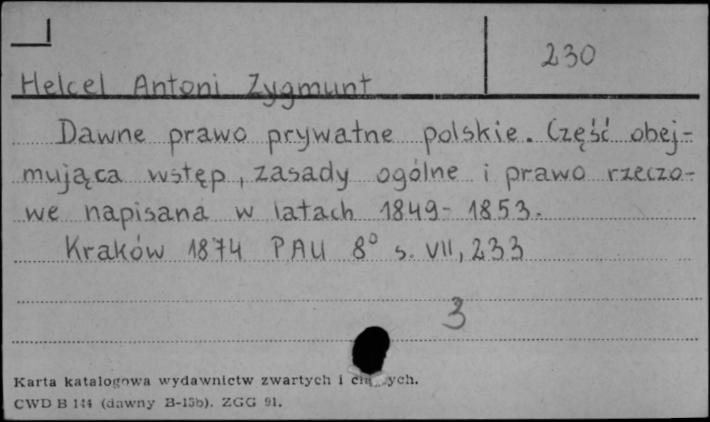 230
Helcel Antoni Zygmunt
Dawne prawo prywatne polskie. Część obej-
mująca wstęp, zasady ogólne i prawo rzeczo-
we napisana w latach 1849-1853.
Kraków 1874 PAU 8° s. VII, 233
3
Karta katalogowa wydawnictw zwartych i
CWD B 144 (dawny B-15b). ZGG 91.